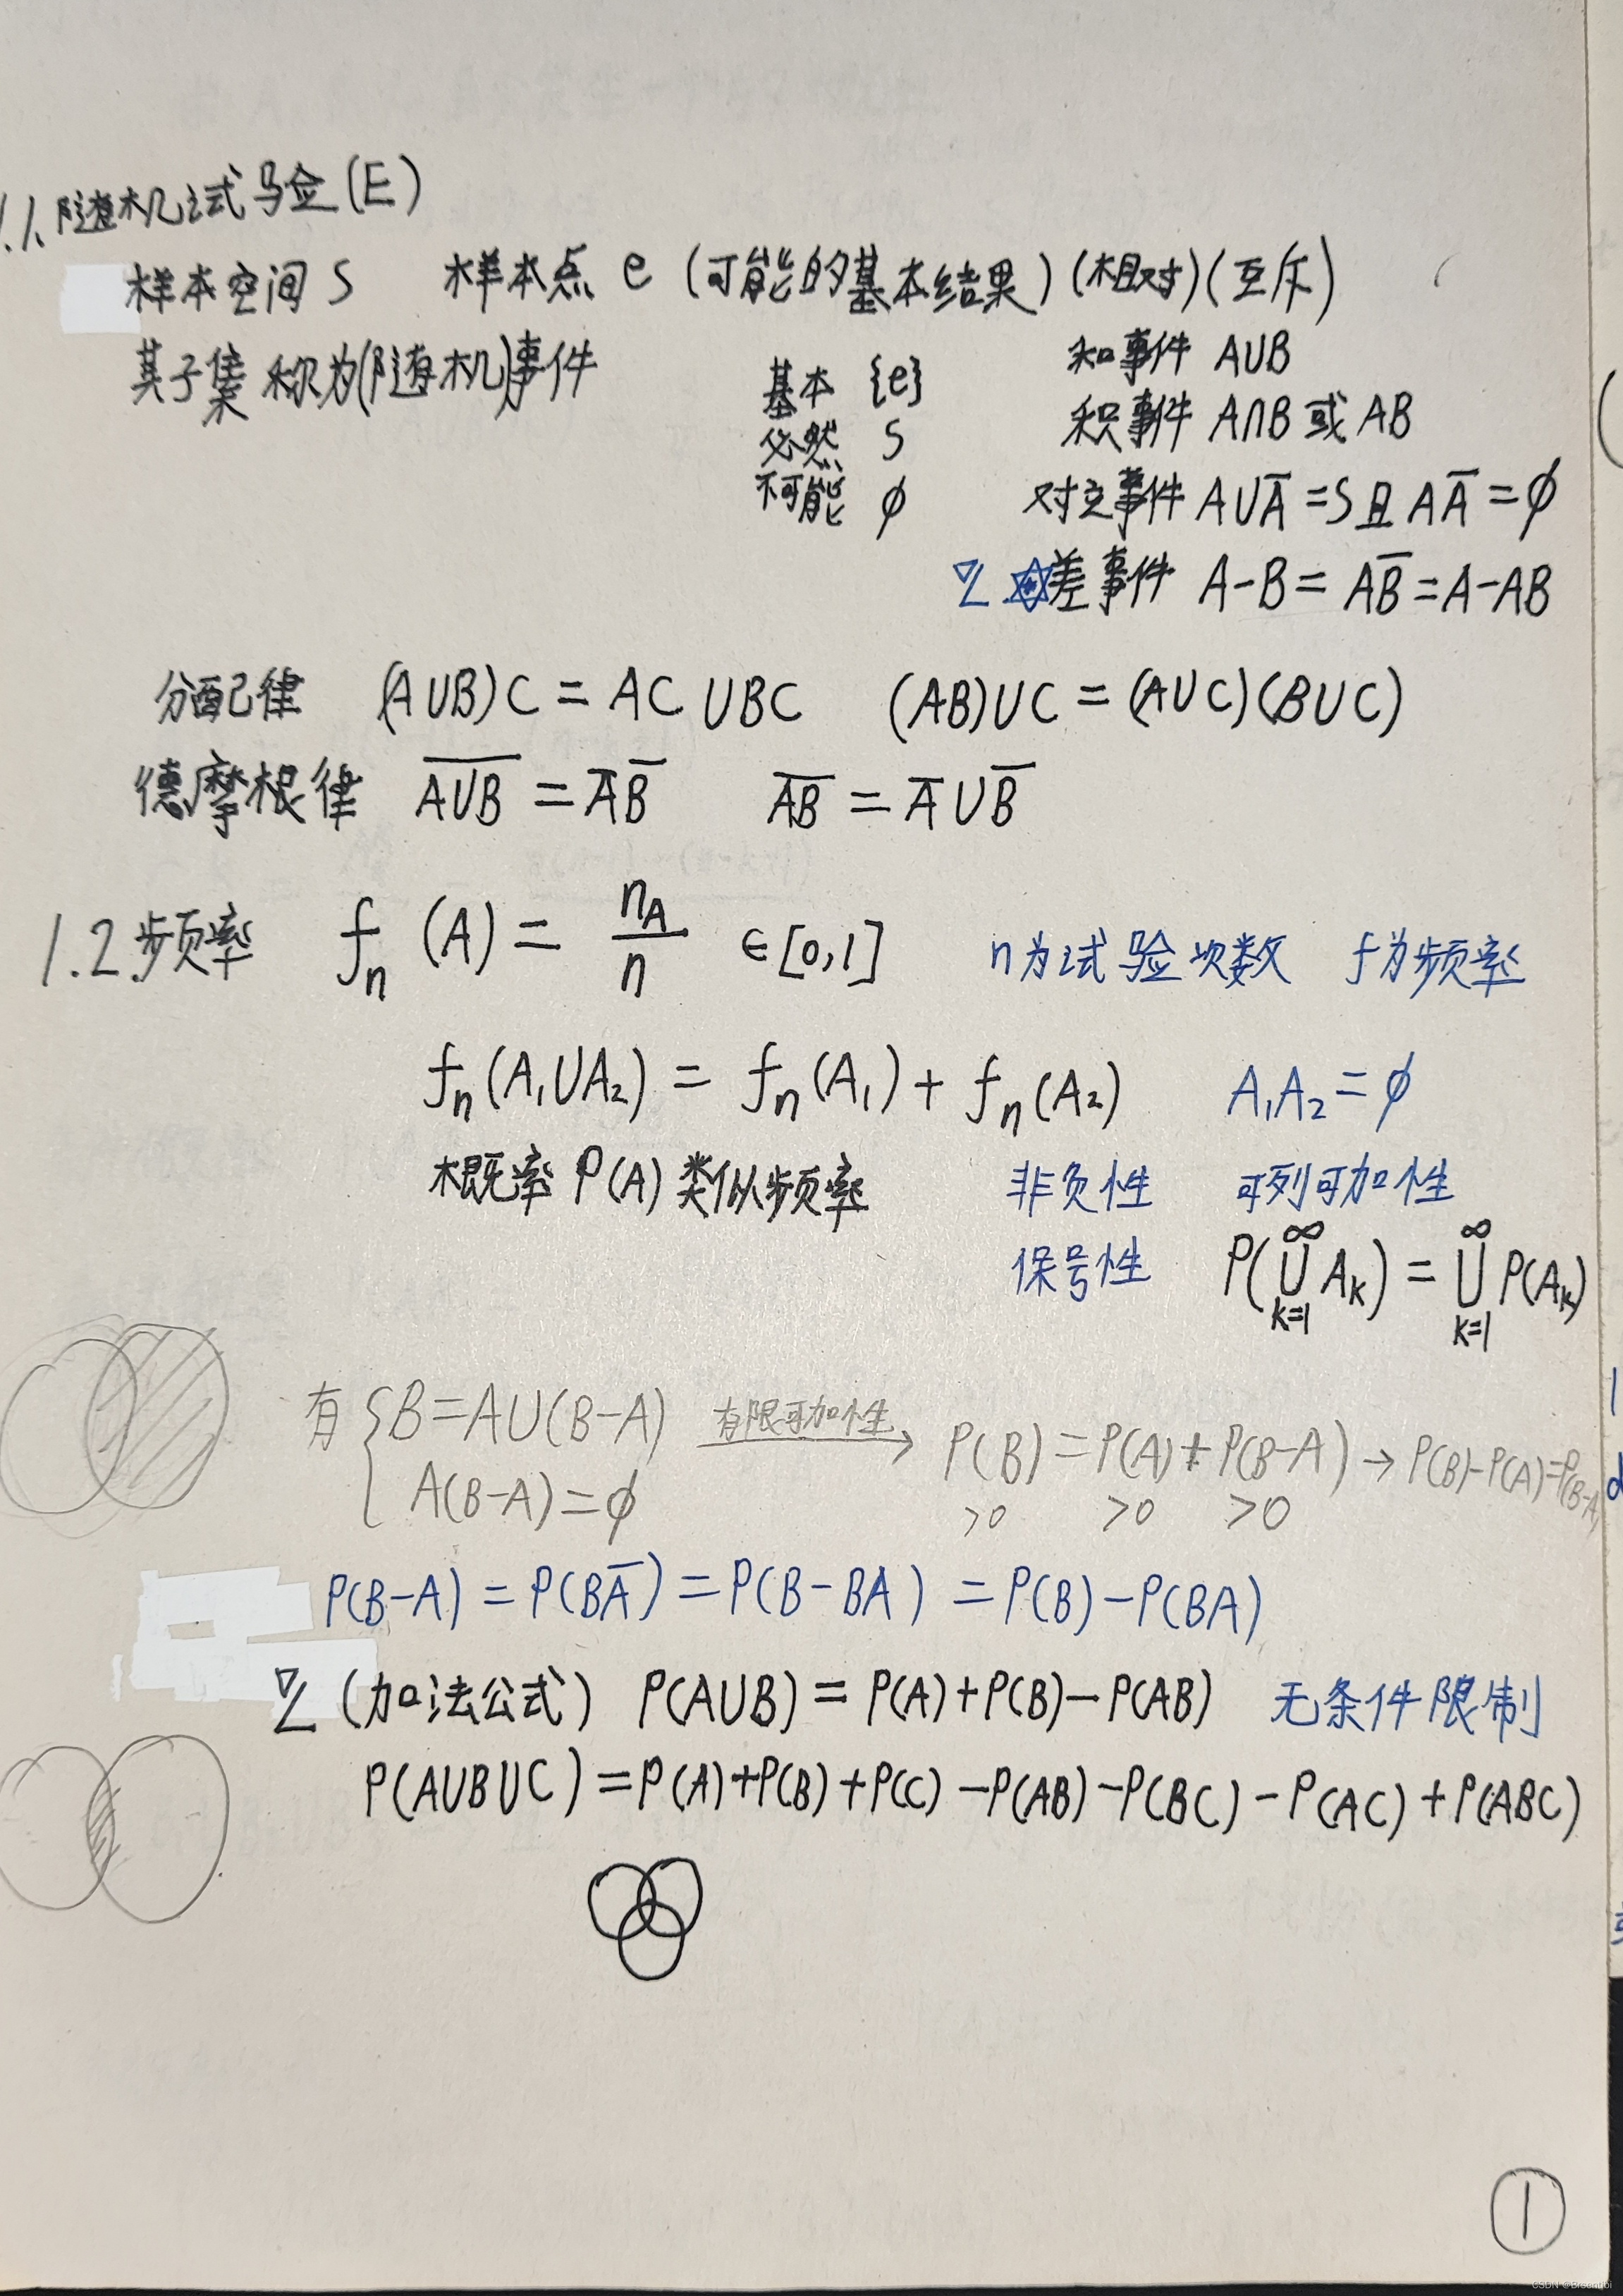 1.1.随机试验(E)
样本空间 S 样本点 e (可能的基本结果)(相对)(互斥)
其子集称为(随机)事件
基本 {e}
必然 S
不可能 ∅
和事件 A∪B
积事件 A∩B 或 AB
对立事件 A∪A̅=S且AA̅=∅
差事件 A-B=AB̅=A-AB
分配律 (A∪B)C=AC∪BC (AB)∪C=(A∪C)(B∪C)
德摩根律 \overline{A∪B}=A̅B̅ \overline{AB}=A̅∪B̅
1.2.频率 fₙ(A)=n_A/n ∈[0,1] n为试验次数 f为频率
fₙ(A₁∪A₂)=fₙ(A₁)+fₙ(A₂) A₁A₂=∅
概率P(A)类似频率 非负性 可列可加性
保号性 P(\bigcup_{k=1}^{∞}A_k)=\bigcup_{k=1}^{∞}P(A_k)
有{B=A∪(B-A) 有限可加性→ P(B)=P(A)+P(B-A)→P(B)-P(A)=P(B-A)
A(B-A)=∅ >0 >0 >0
P(B-A)=P(BA̅)=P(B-BA)=P(B)-P(BA)
(加法公式) P(A∪B)=P(A)+P(B)-P(AB) 无条件限制
P(A∪B∪C)=P(A)+P(B)+P(C)-P(AB)-P(BC)-P(AC)+P(ABC)
1